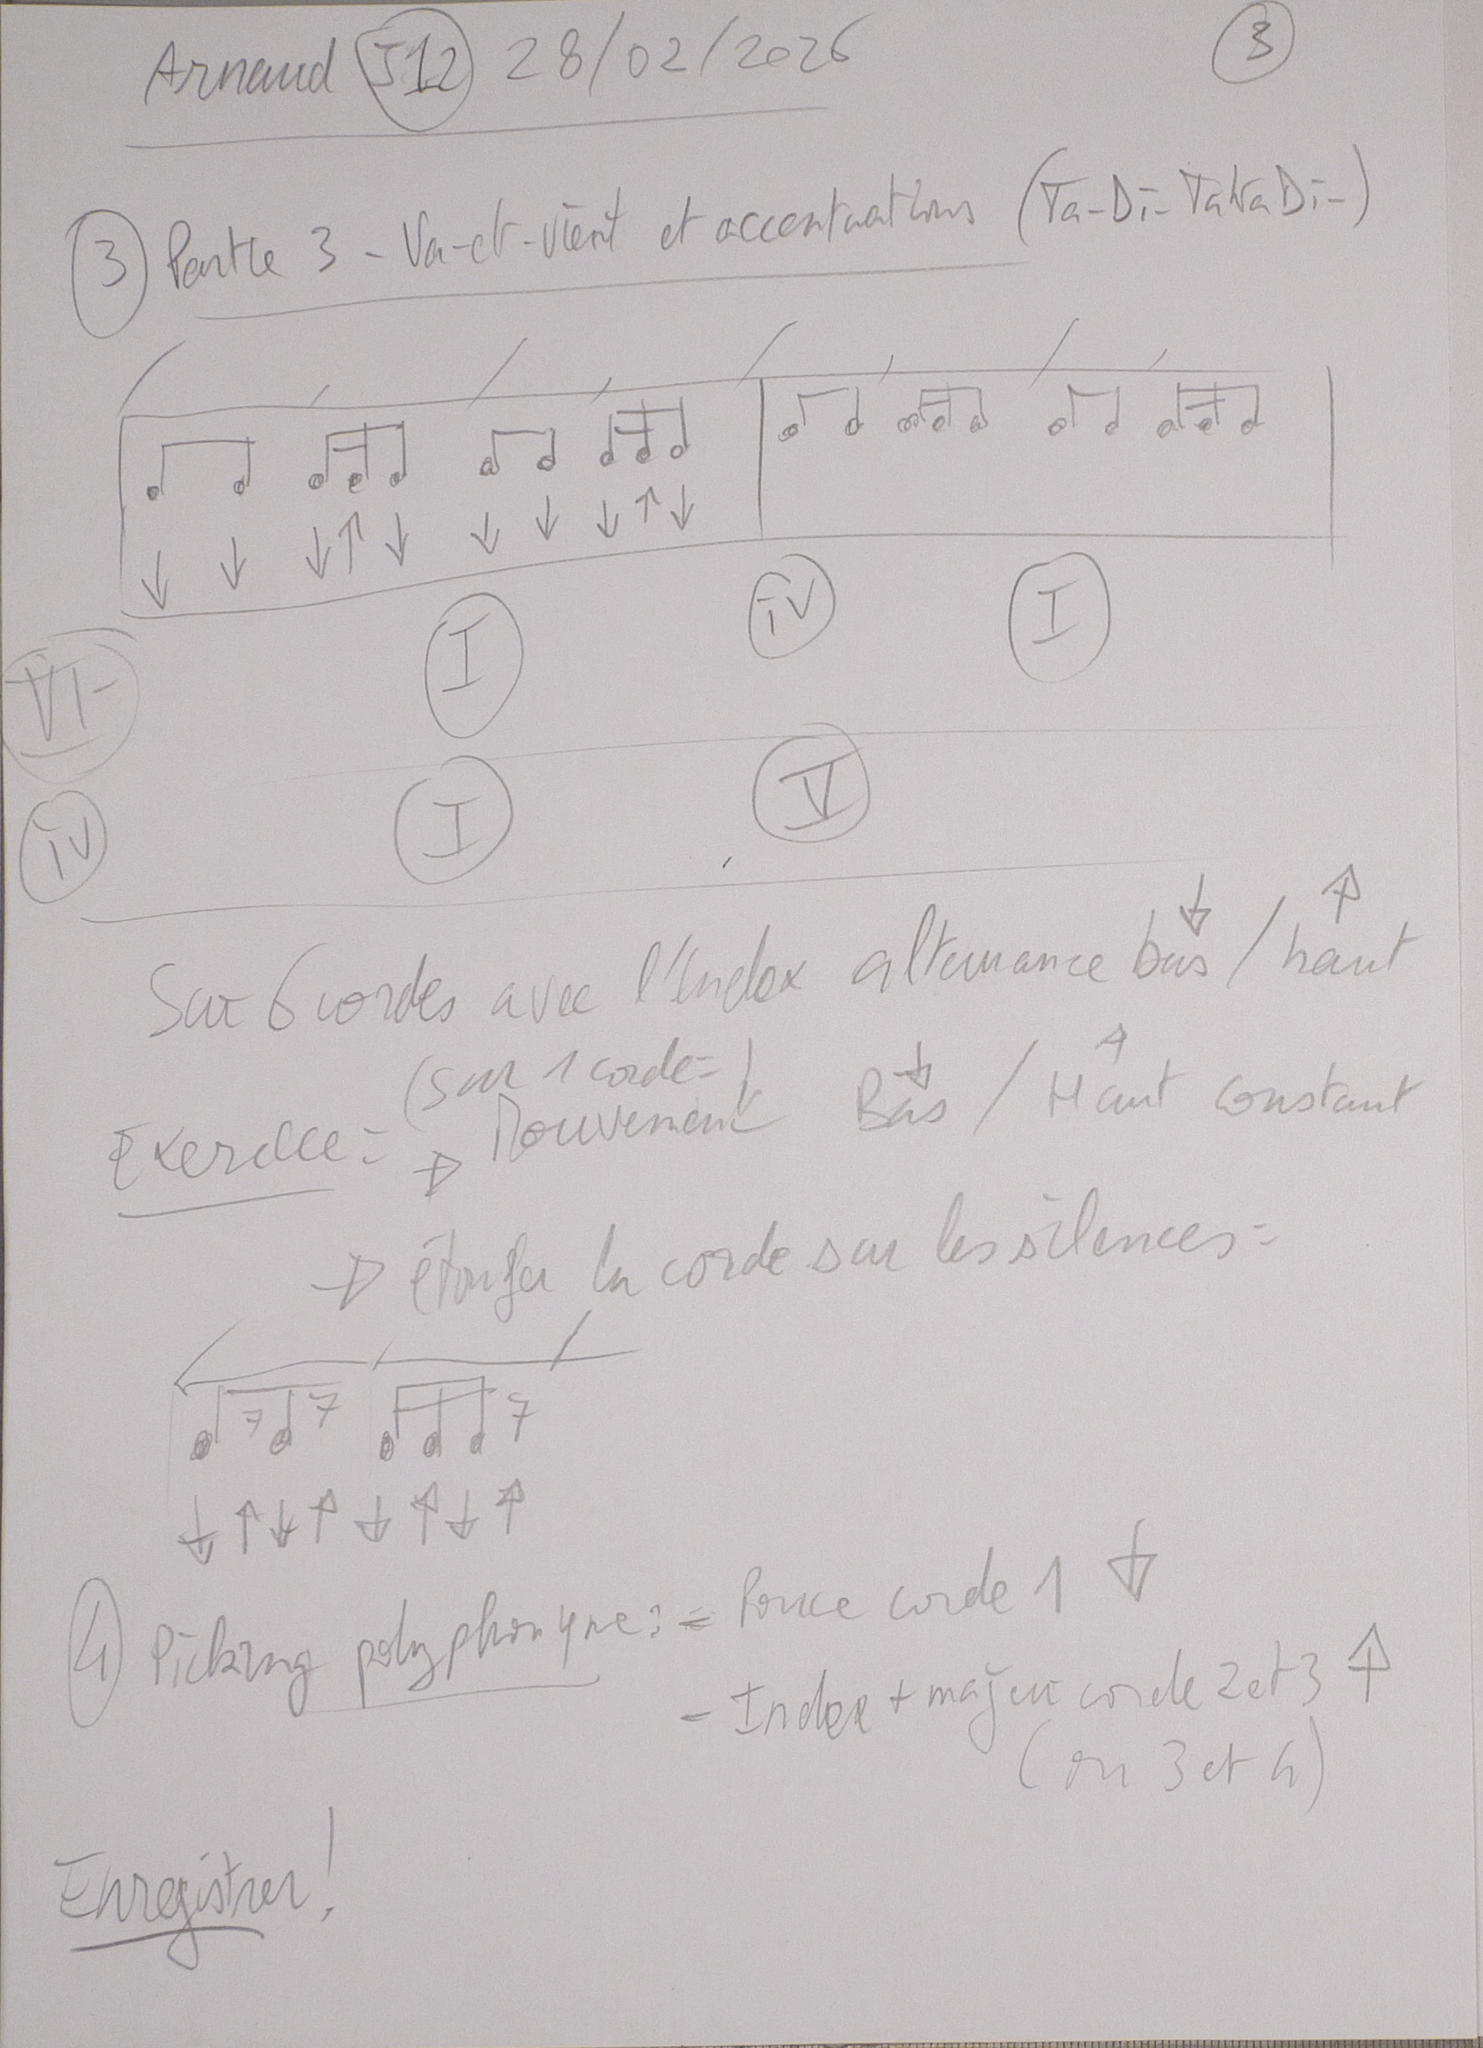 Arnaud J12 28/02/2026 3
3 Partie 3 - Va-et-vient et accentuations (Ta-Di- TaKaDi-)
↓ ↓ ↓ ↑ ↓ ↓ ↓ ↓ ↑ ↓
VI- I iv I
iv I V
Sur 6 cordes avec l'Index alternance bas ↓ / haut ↑
(sur 1 corde = )
Exercice = → Mouvement Bas ↓ / Haut ↑ constant
→ étoufer la corde sur les silences =
↓ ↑ ↓ ↑ ↓ ↑ ↓ ↑
4 Picking polyphonique : = Pouce corde 1 ↓
- Index + majeur corde 2 et 3 ↑
(ou 3 et 4)
Enregistrer !